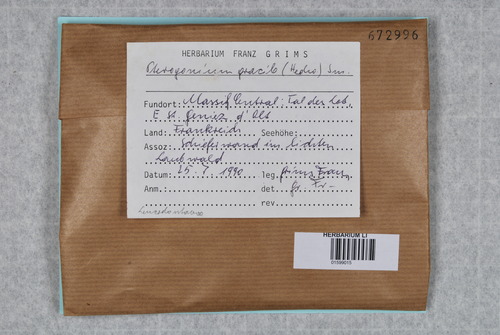 672996
HERBARIUM FRANZ GRIMS
Pterogonium gracile (Hedw) Sm.
Fundort: Massif Central: Tal der Lot,
E St. Geniez d'Olt
Land: Frankreich Seehöhe:
Assoz: Schieferwand im lichten
Laubwald
Datum: 25.7.1990 leg. Grims Franz
Anm. det. Gr. Fr.
rev.
HERBARIUM LI
01599015